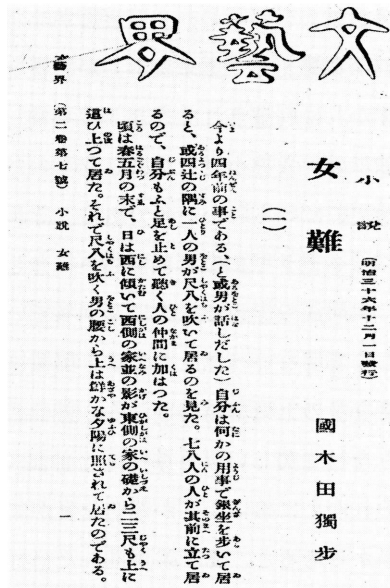 文藝界
小説
女難
(明治三十六年十二月一日發行)
國木田獨步
(一)
今より四年前の事である、(と或男が話しだした)自分は何かの用事で銀坐を歩いて居
ると、或四辻の隅に一人の男が尺八を吹いて居るのを見た。七八人の人が其前に立て居
るので、自分もふと足を止めて聽く人の仲間に加はつた。
頃は春五月の末で、日は西に傾いて西側の家並の影が東側の家の礎から二三尺も上に
這ひ上つて居た。それで尺八を吹く男の腰から上は鮮かな夕陽に照されて居たのである。
文藝界 (第二卷第七號) 小説 女難
一